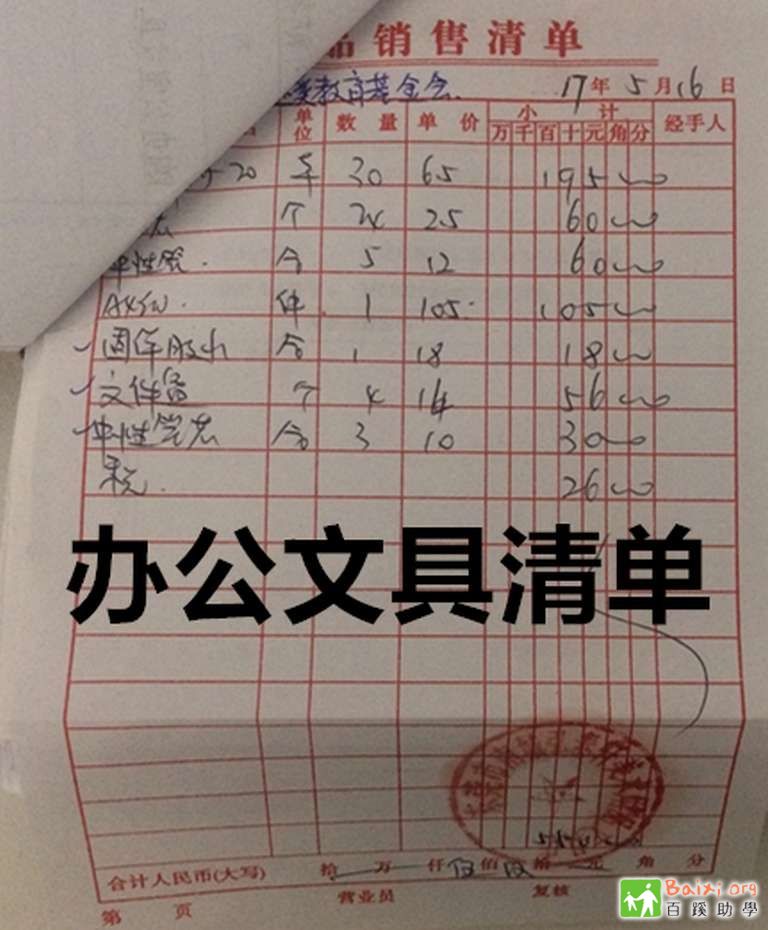 品销售清单
爱教育基金会 17年5月16日
单位 数量 单价 小计 经手人
万千百十元角分
20 本 30 65 195
个 24 25 60
中性笔 合 5 12 60
A4纸 件 1 105 105
固体胶水 合 1 18 18
文件盒 个 4 14 56
中性笔芯 合 3 10 30
税 26
办公文具清单
合计人民币(大写) 拾 万 仟 伍佰 伍拾 元 角 分
第 页 营业员 复核
Baixi.org
百蹊助學